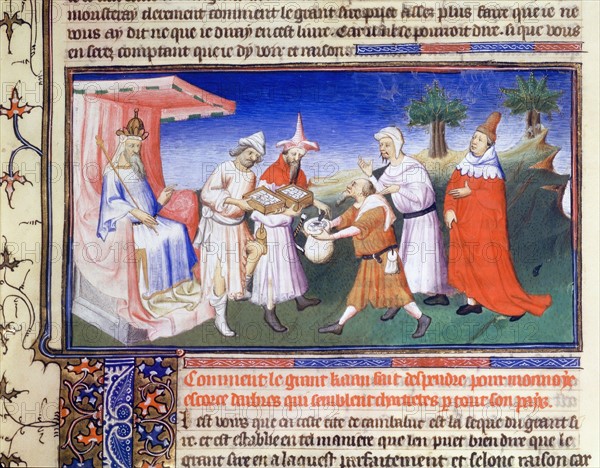 monstreray clerement comment le grant sire puet assez plus faire que ie ne
vous ay dit ne que ie diray en cest liure. Car il les
pourroit dire. si que vous
en serez comptant que ie dy voir et raison
Comment le grant kaan fait despendre pour monnoye
escorce darbres qui semblent chartretes par tout son pays.
Il est voirs que en ceste cite de cambaluc est la secque du grant si
re. et est establie en tel maniere que len puet bien dire que le
grant sire en a laquest parfaitement et selonc raison. car
PHOTO12